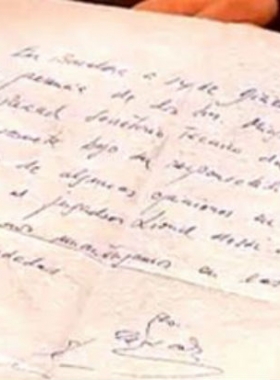 En Barcelona a 14 de Dici
presencia de los Sres Min
Rexach Secretario Técnico de
bajo su responsabilid
de algunas opiniones en
al jugador Lionel
nos mantengamos en las
dadas.